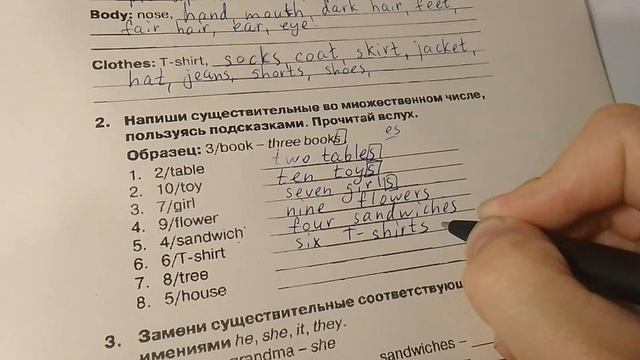 Body: nose, hand, mouth, dark hair, feet,
fair hair, ear, eye.
Clothes: T-shirt, socks, coat, skirt, jacket,
hat, jeans, shorts, shoes,
2. Напиши существительные во множественном числе,
пользуясь подсказками. Прочитай вслух.
es
Образец: 3/book – three books
1. 2/table two tables
2. 10/toy ten toys
3. 7/girl seven girls
4. 9/flower nine flowers
5. 4/sandwich four sandwiches
6. 6/T-shirt six T-shirts
7. 8/tree
8. 5/house
3. Замени существительные соответствующ
имениями he, she, it, they.
grandma – she sandwiches –